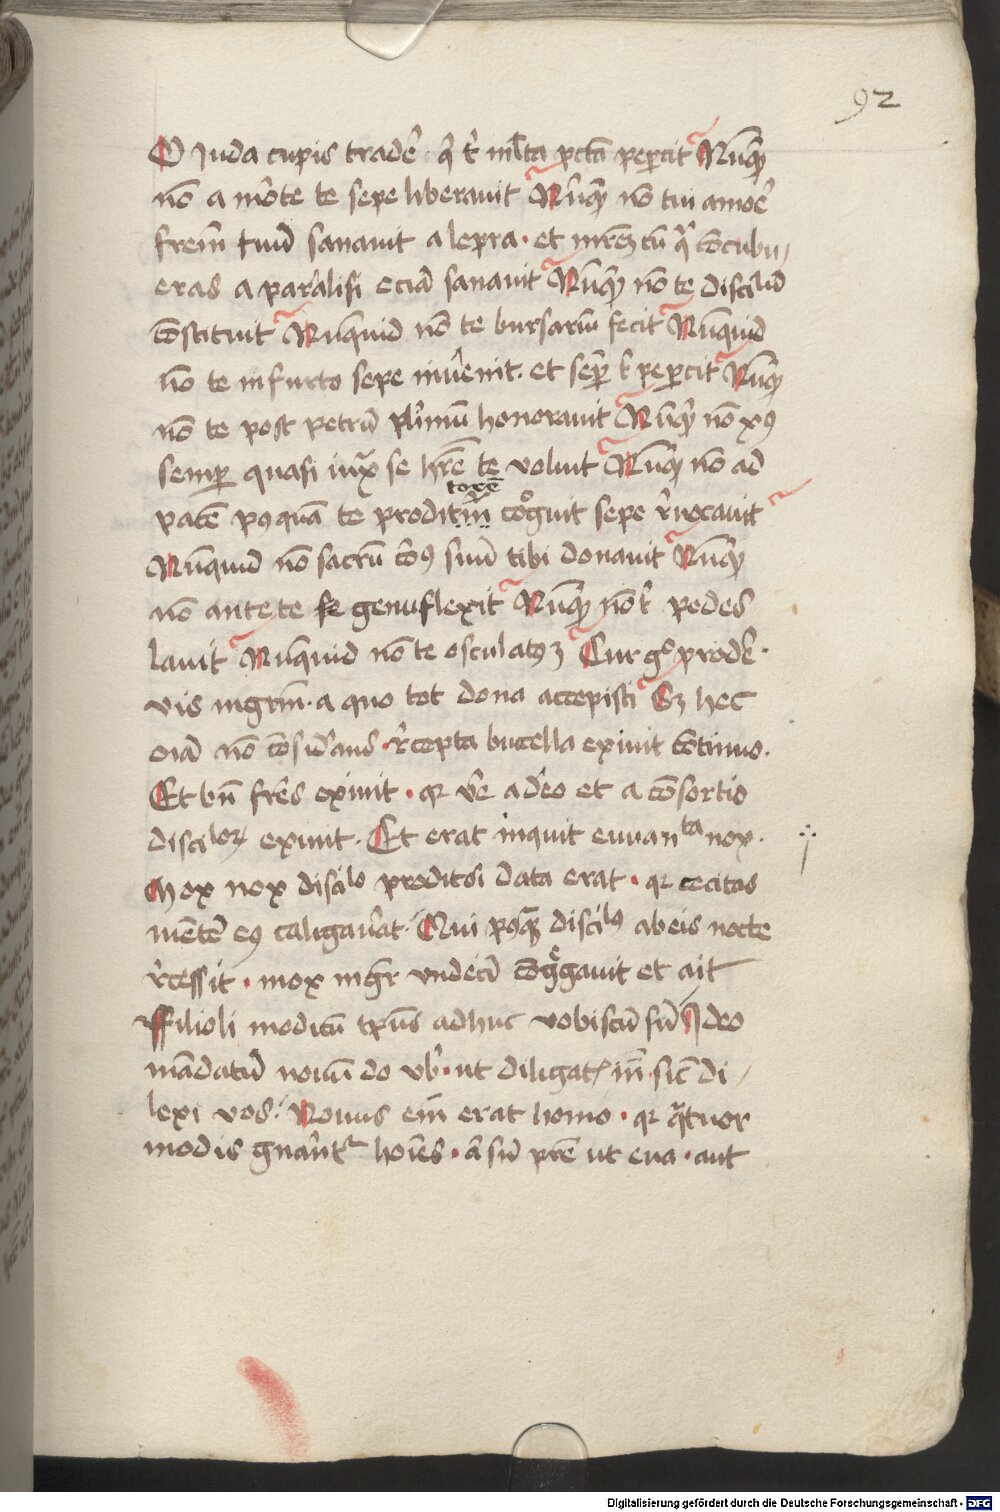 92
O Juda cupis tradẽ · q̃ t̃ mlta pctã peꝑcit Nũqͥd
nõ a mõte te sepe liberavit Nũqͥd nõ tui amoẽ
freʒ tuũ sanavit a lepra · et mreʒ cũ qͣ cõcubu/
eras a paralisi eciã sanavit Nũqͥd nõ te discilud
cõstituit Nũquid nõ te bursariũ fecit Nũquid
nõ te in furto sepe inuẽit · et sẽꝑ t̃ peꝑcit Nũqͥd
nõ te post petrũ plimũ honoravit Nũqͥd nõ xꝰ
semꝑ quasi iuxͣ se hr̃e te voluit Nũqͥd nõ ad
torẽ
patẽ pꝰquã te proditm̃ cõgͦuit sepe r̃uocavit
Nũquid nõ sacrũ cõꝰ suũ tibi donavit Nũqͥd
nõ ante te se genuflexit Nũqͥd nõ t̃ pedes
lavit Nũquid nõ te osculatꝰ ʒ Cur gͦ prodẽ ·
vis mgr̃m · a quo tot dona accepisti Sʒ hec
oĩa nõ cõsid̃ans · r̃cepta bucella exivit cõtinuo ·
Et bñ fr̃es exivit · qꝛ ṽe a deo et a cõsortio
discilorꝝ exiuit · Et erat inquit euuanta nox ·
Mox nox discilo proditoi data erat · qꝛ cecitas
mẽtẽ eꝰ caligaṽat · Qui pꝰqͣʒ discilꝰ ab eis nocte
r̃cessit · mox mgr̃ vndecĩ cõgͤgavit et ait
Filioli modicũ tp̃us adhuc vobiscũ sũ Ideo
mãdatũ novũ do vob̃ · ut diligatꝭ inṽ sic̃ di/
lexi vos · Novus eñ erat homo · qꝛ qͣtuor
modis gñant͛ hoĩes · aͭ sñ pr̃e ut eua · aut
Digitalisierung gefördert durch die Deutsche Forschungsgemeinschaft - DFG